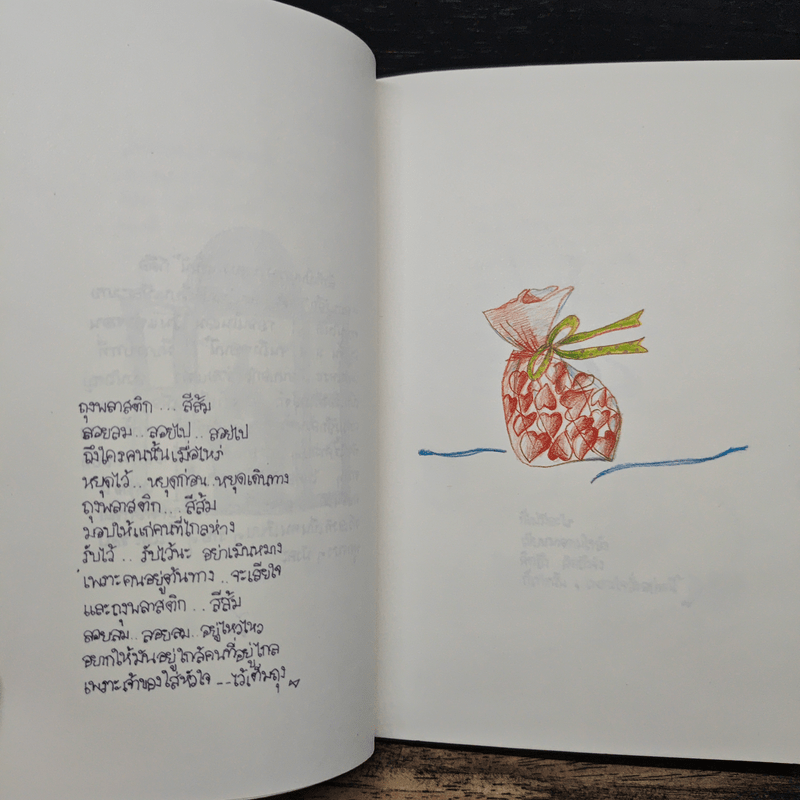 ถุงพลาสติก...สีส้ม
ลอยลม..ลอยไป..ลอยไป
ถึงใครคนนั้นเมื่อไหร่
หยุดไว้..หยุดก่อน..หยุดเดินทาง
ถุงพลาสติก...สีส้ม
มอบให้แก่คนที่ไกลห่าง
รับไว้..รับไว้นะ อย่าเมินหมาง
เพราะคนอยู่ต้นทาง..จะเสียใจ
และถุงพลาสติก...สีส้ม
ลอยลม..ลอยลม..อยู่ไหวไหว
อยากให้มันอยู่ใกล้คนที่อยู่ไกล
เพราะเจ้าของใส่หัวใจ--ไว้เต็มถุง